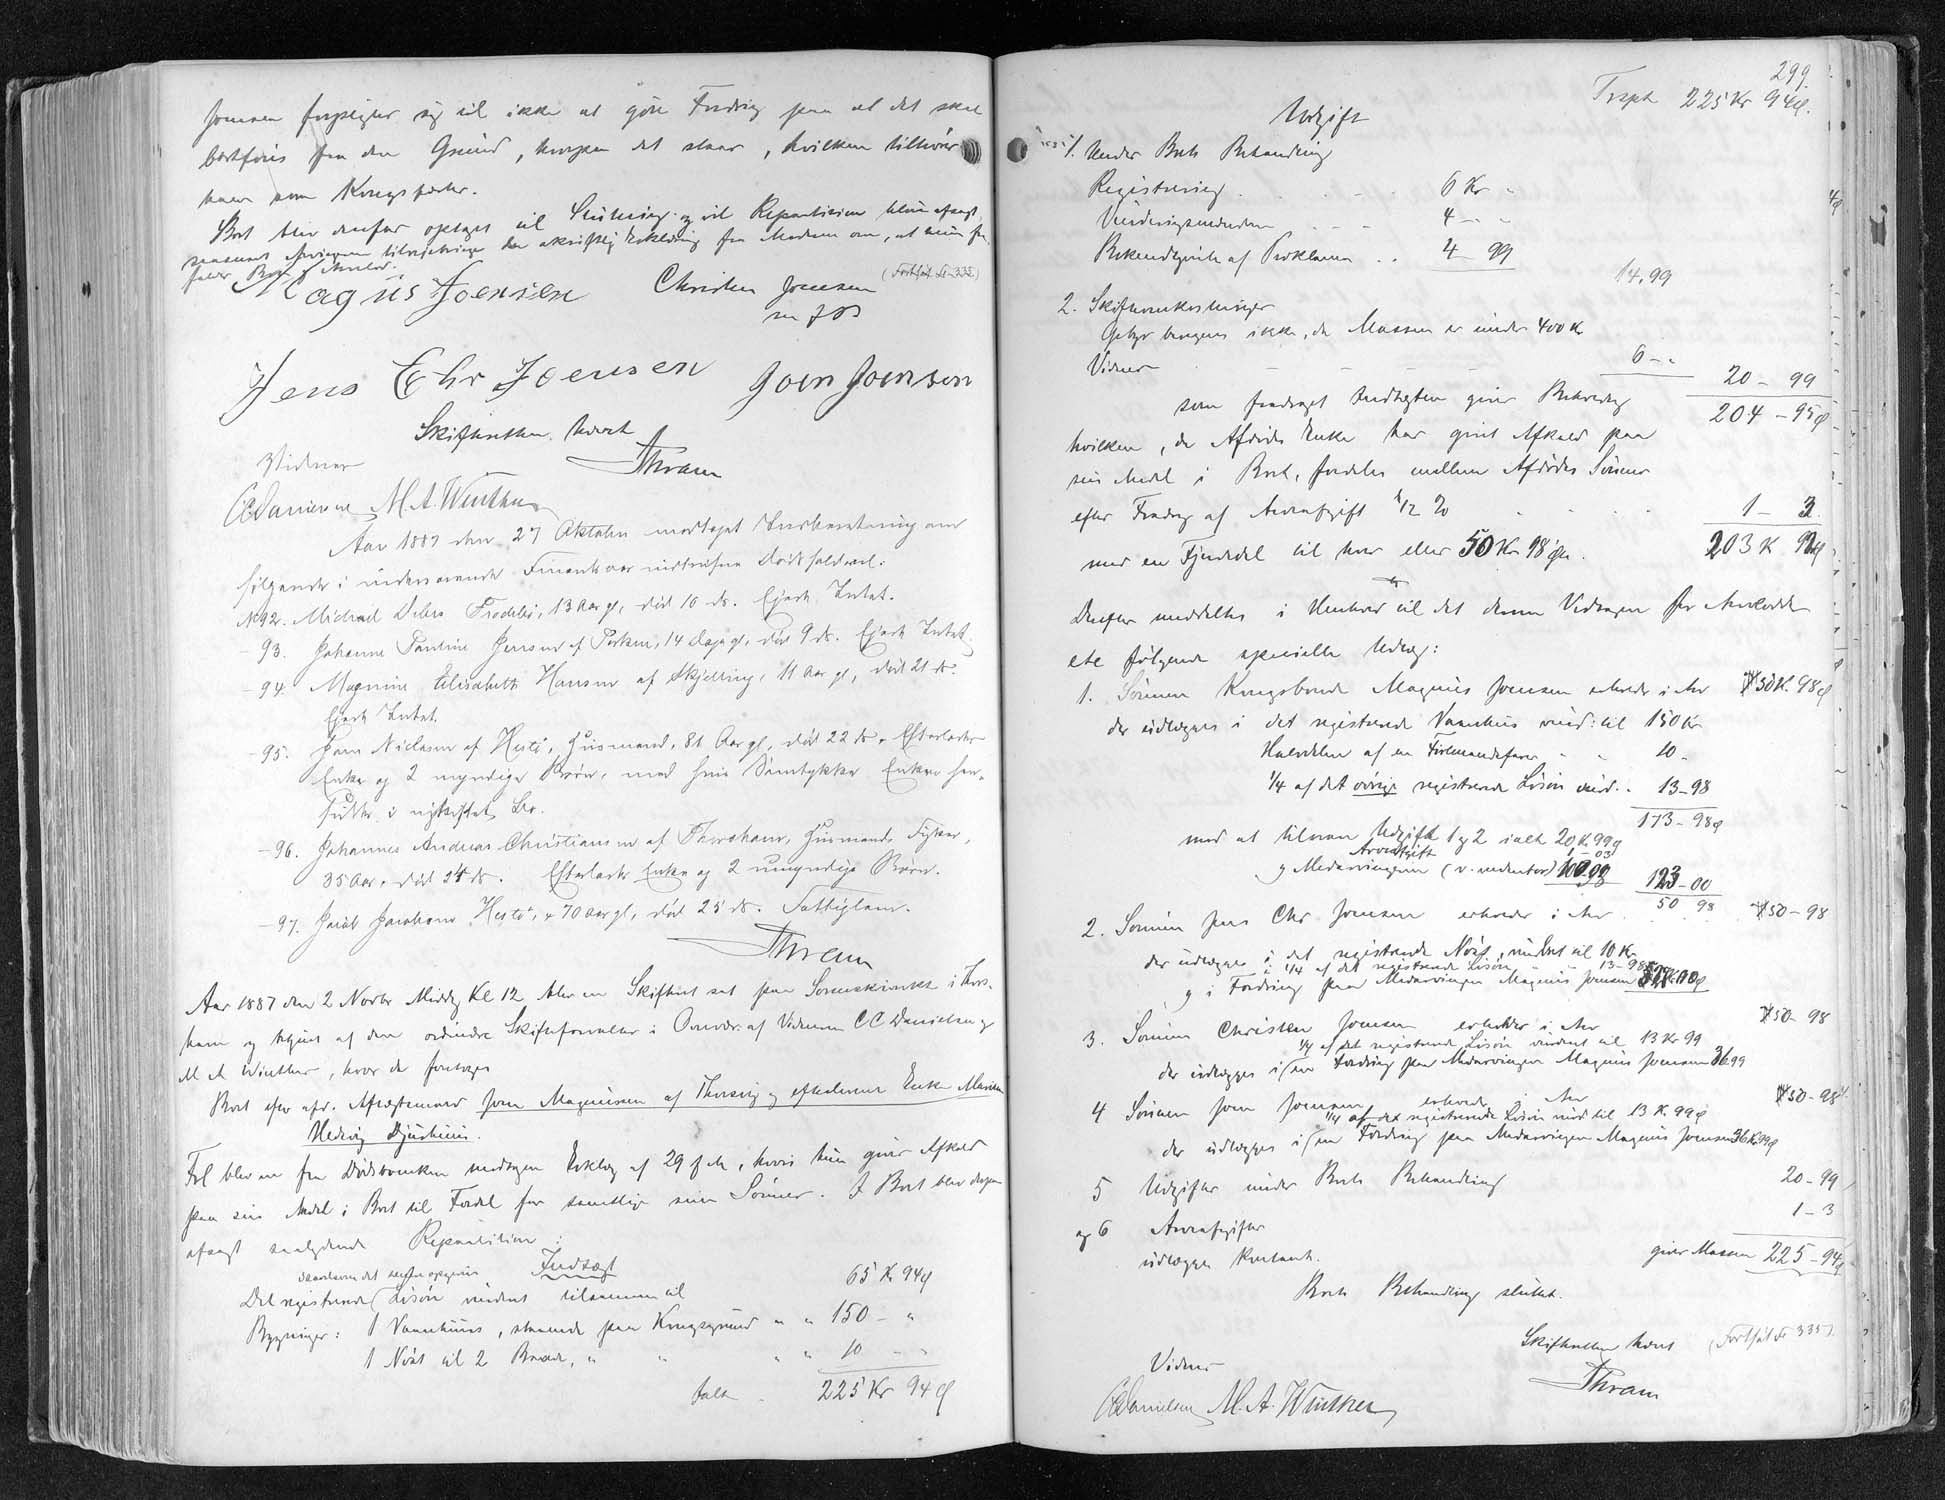 Joensen forpligter sig til ikke at göre Fordring paa at det skal
bortföres fra den Grund, hvorpaa det staar, hvilken tilhörer
ham som Kongsfæster.
Boet blev derefter optaget til Slutning og vil Repartition blive afsagt,
saasnart Arvingerne tilvejebringe en skriftlig Erklæring fra Moderen om, at hun fra-
falder Boets Arvelod.
(Fortsat Fo 335)
Magnus Joensen Christen Joensen
m f P
Jens Chr Joensen Joen Joensen
Skifteretten hævet
Vidner Thram
CC Danielsen M. A. Winther
Aar 1887 den 27 Oktober modtaget Indberetning om
fölgende i indeværende Finantsaar indtrufne Dödsfald:
No 92. Michael Debes Frodebö, 13 Aar gl, död 10 ds. Ejede Intet.
- 93. Johanne Pauline Jensen af Porkeri, 14 Dage gl, död 9 ds. Ejede Intet.
- 94. Magnine Elisabeth Hansen af Skjelling, 11 Aar gl, död 21 ds.
Ejede Intet.
- 95. Joen Niclasen af Hestö, Husmand, 81 Aar gl, död 22 ds. Efterlader
Enke og 2 myndige Börn, med hvis Samtykke Enken hen-
sidder i uskiftet Bo.
- 96. Johannes Andreas Christiansen af Thorshavn, Husmand, Fisker,
35 Aar, död 24 ds. Efterlader Enke og 2 umyndige Börn.
- 97. Jacob Jacobsen Hestö, 70 Aar gl, död 25 ds. Fattiglem.
Thram
Aar 1887 den 2 Novbr Middag Kl 12 blev en Skifteret sat paa Sorenskriveriet i Thors-
havn og betjent af den ordinære Skifteforvalter i Overvær af Vidnerne CC Danielsen og
M A Winther, hvor da foretoges
Boet efter afd. Aftægtsmand Joen Magnussen af Thorsvig og efterlevende Enke Maren
Hedvig Djurhuus.
Frl blev en fra Dödsboenken modtagen Erklæring af 29 f. M., hvori hun giver Afkald
paa sin Andel i Boet til Fordel for samtlige sine Sönner. I Boet blev derpaa
afsagt saalydende Repartition:
Indtægt
Det registrerede Lösöre vurderet tilsammen til 65 Kr 94 ø
Bygninger: 1 Vaanhuus, staaende paa Kongsgrund " " 150 - "
1 Nöst til 2 Baade, " " " " 10 - -
Ialt 225 Kr 94 ø
299.
Trspt 225 Kr 94 ø.
Udgift
1. Under Boets Behandling
Registrering . . . . 6 Kr -
Vurderingsmændene . . . 4 - -
Bekendtgörelse af Proklama . . 4 99
14,99
2. Skifteomkostninger
Gebyr beregnes ikke, da Massen er under 400 Kr
Vidner - - - - - 6 - - 20 - 99
som fradraget Indtægten giver Beholdning 204 - 95 ø
hvilken, da Afdödes Enke har givet Afkald paa
sin Andel i Boet, fordeles mellem Afdödes Sönner
efter Fradrag af Arveafgift 1/2 % 1 - 3
med en Fjerdedel til hver eller 50 Kr 98 øre. 203 K 92 ø
Derefter meddeltes i Henhold til det denne Vedtagne for Arvelodder
etc fölgende specielle Udlæg:
1. Sönnen Kongsbonde Magnus Joensen erholder i Arv 50 K. 98 ø
der udlægges i det registrerede Vaanhus vurd: til 150 Kr
Halvdelen af en Firemandsfarer - - 10 -
1/4 af det övrige registrerede Lösöre vurd. . 13 - 98
173 - 98 ø
mod at tilsvare Udgift 1 og 2 ialt 20 K. 99 ø
Arveafgift 1 - 03
og Medarvingerne (v. nedenfor) 123 - 00
50 98
2. Sönnen Jens Chr Joensen erholder i Arv 50 - 98
der udlægges i det registrerede Nöst, vurderet til 10 Kr
i 1/4 af det registrerede Lösöre - - 13 - 98
og i Fordring paa Medarvingen Magnus Joensen
3. Sönnen Christen Joensen erholder i Arv 50 - 98
1/4 af det registrerede Lösöre vurderet til 13 Kr 99
der udlægges i en Fordring paa Medarvingen Magnus Joensen 36 99
4 Sönnen Joen Joensen erholder i Arv 50 - 98
1/4 af det registrerede Lösöre vurd til 13 K. 99 ø
der udlægges i en Fordring paa Medarvingen Magnus Joensen 36 Kr 99 ø
5 Udgifter under Boets Behandling 20 - 99
og 6 Arveafgifter 1 - 3
udlægges kontant. giver Massen 225 - 94 ø
Boets Behandling sluttet.
Skifteretten hævet (Fortsat Fo 335).
Vidner Thram
CC Danielsen M. A. Winther